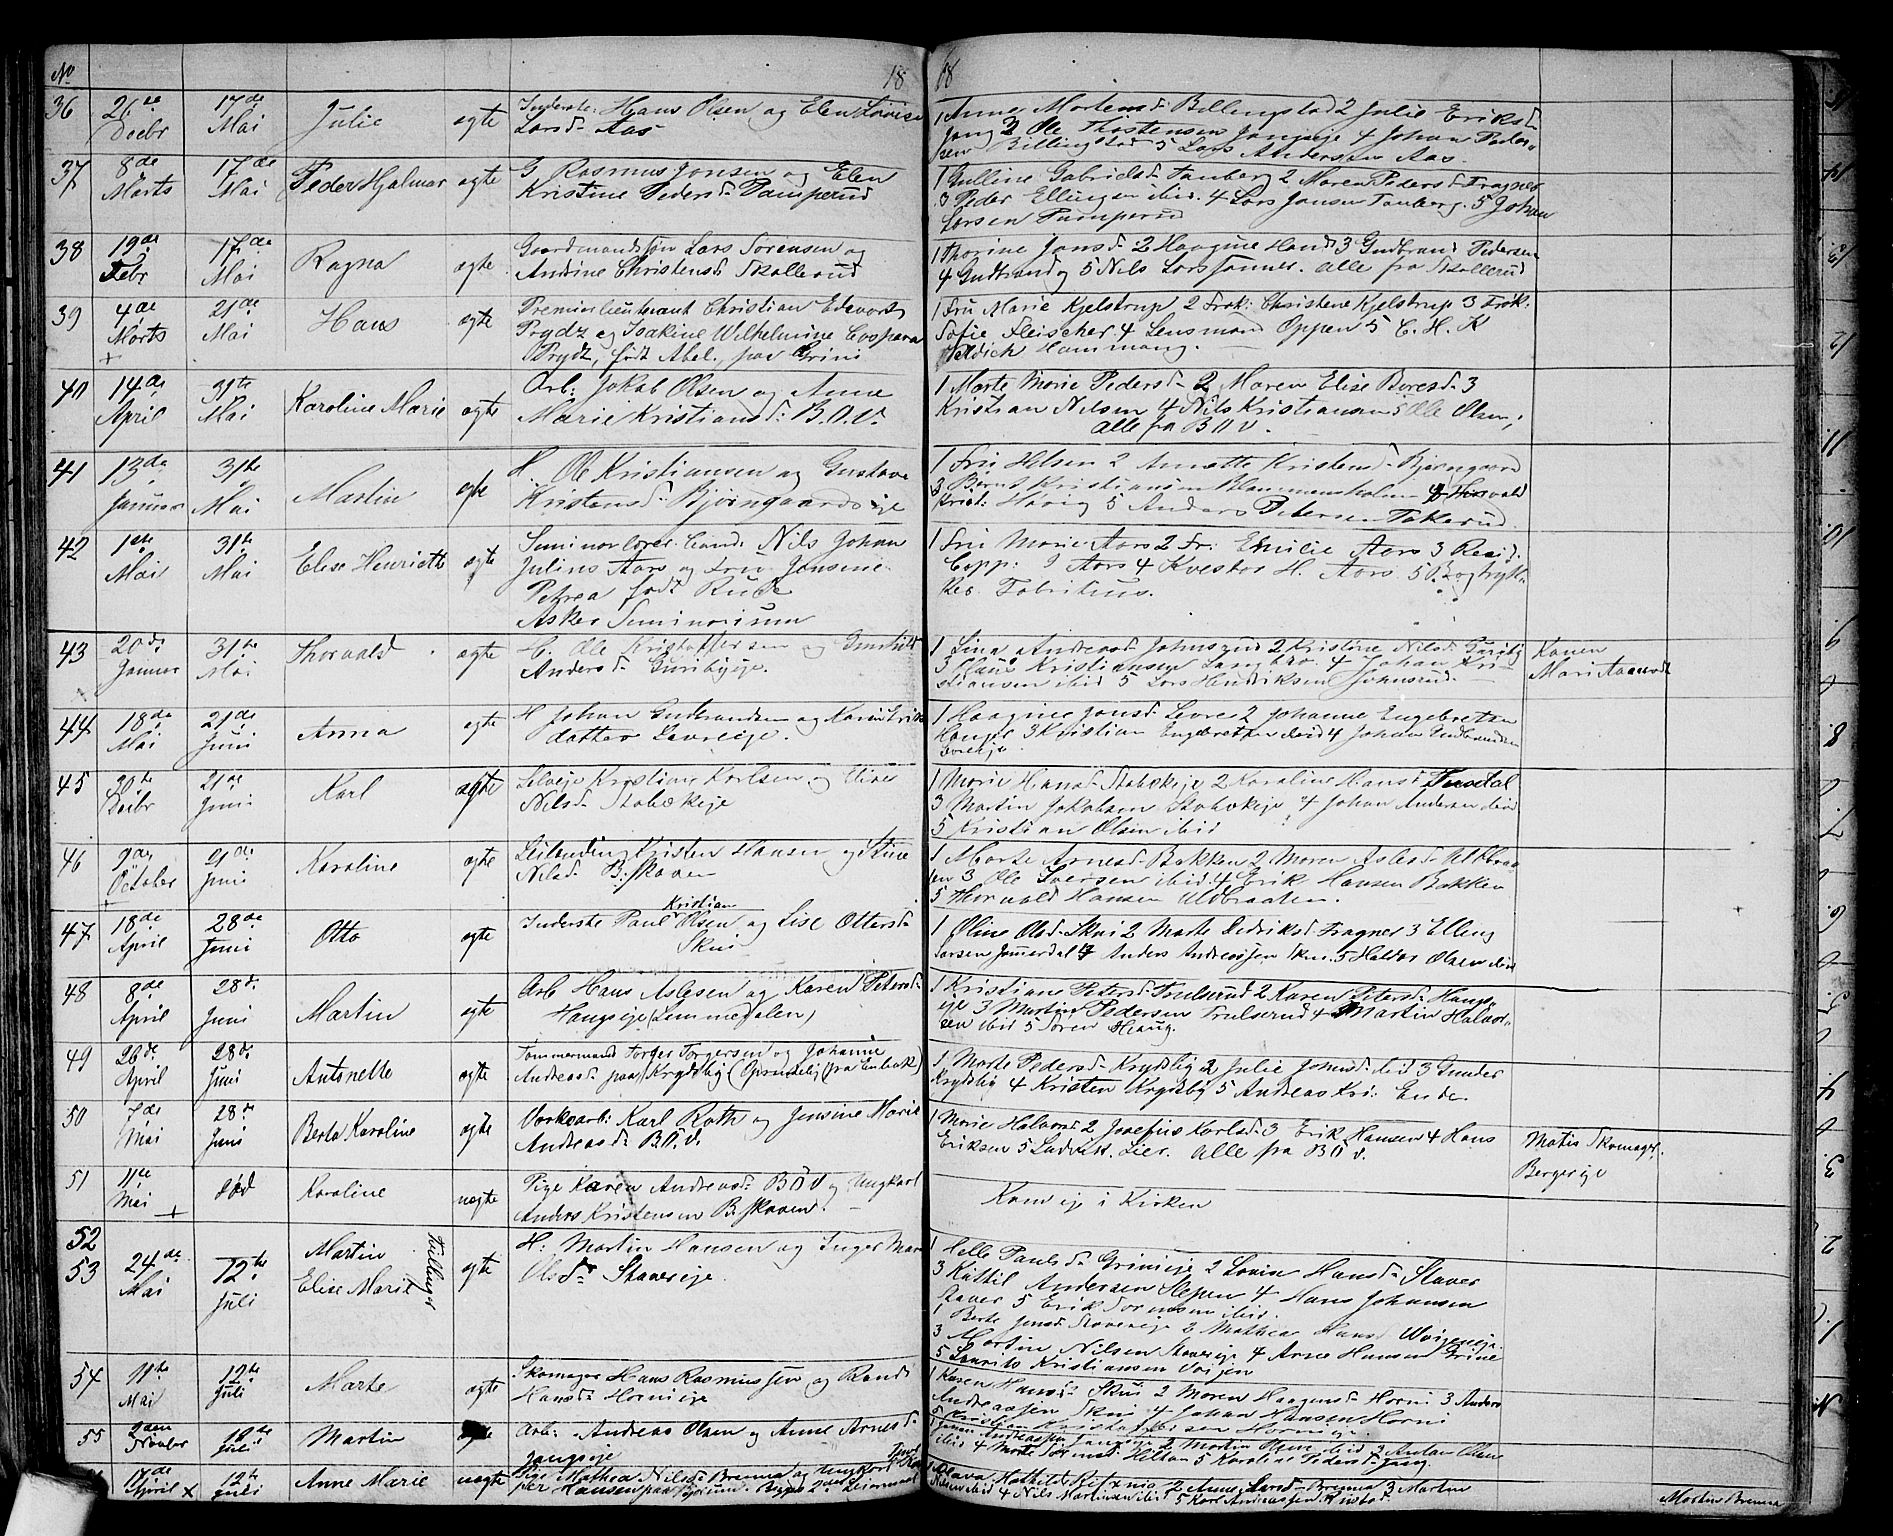 No 18 18
36 26de Decbr 17de Mai Julie ægte Inderste: Hans Olsen og Elen Lovise
Larsd. Aas
1 Anne Mortensd. Billingstad 2 Julie Eriksd.
Jong 3 Ole Thostensen Jongseje 4 Johan Peder-
sen Billingstad 5 Lars Andersen Aas.
37 8de Marts 17de Mai Peder Hjalmar ægte G Rasmus Jonsen og Elen
Kristine Pedersd. Pamperud
1 Gulline Gabrielsd. Tanberg 2 Maren Pedersd. Fragner
3 Peder Ellingsen ibid. 4 Lars Jonsen Tanberg. 5 Johan
Larsen Pamperud
38 19de Febr 17de Mai Ragna ægte Gaardmandssøn Lars Sørensen og
Andrine Christensd. Skollerud
1 Thorine Jonsd. 2 Haagine Hansd 3 Gudbrand Pedersen
4 Gudbrand og 5 Nils Larssønner. Alle fra Skollerud
39 4de Marts + 21de Mai Hans ægte Premierlieutenant Christian Edevart
Prydz og Isakine Wilhelmine Caspara
Prydz, født Abel. paa Grini
1 Fru Marie Kjelstrup 2 Frøk: Christene Kjelstrup 3 Frøk.
Sofie Fleischer 4 Lensmand Oppen 5 C. H. K
Hammang.
40 14de April 31te Mai Karoline Marie ægte Arb: Jakob Olsen og Anne
Marie Kristiansd: B.O.V.
1 Marte Marie Pedersd. 2 Maren Elise Boresd. 3
Kristian Nilsen 4 Nils Kristiansen 5 Ole Olsen,
alle fra B O V.
41 13de Januar 31te Mai Martin ægte H. Ole Kristiansen og Gustava
Kristensd. Bjørngaardseje
1 Fru Helsen 2 Annette Kristensd. Bjørngaard
3 Bernt Kristiansen Blommenholm 4
Krist: Høvig 5 Anders Petersen Takerud.
42 1ste Mai 31te Mai Elise Henriette ægte Seminarlærer Cand. Nils Johan
Julius Aars og Fru Jensine
Petrea født Rude
Asker Seminarium
1 Fru Marie Aars 2 Fr: Emilie Aars 3 Resid.
Capp: J Aars 4 Kvestor H. Aars 5 Bogtryk-
ker Fabritius.
43 20de Januar 31te Mai Thorvald ægte H. Ole Kristoffersen og Gunhild
Andersd. Guribyeje.
1 Lina Andreasd. Johnsrud 2 Kristine Nilsd. Guriby
3 Hans Kristiansen Langbro. 4 Johan Kri-
stiansen ibid 5 Lars Hendriksen Johnsrud.
Konen
Mari Aamodt
44 18de Mai 21de Juni Anna ægte H Johan Gudbrandsen og Karen Erik
datter Løvreeje.
1 Haagine Jonsd. Levre 2 Johanne Engebretsen
Hauger 3 Kristian Engebretsen ibid 4 Johan Gudbrandsen
Levreeje
45 20de Decbr 21de Juni Karl ægte Selveje Kristian Karlsen og Eline
Nilsd. Stabækeje
1 Marie Hansd. Stabækeje 2 Karoline Hansd. Tuvedal
3 Martin Jakobsen Stabækeje 4 Johan Andersen ibid
5 Kristian Olsen ibid
46 9de October 21de Juni Karoline ægte Leilænding Kristen Hansen og Stine
Nilsd. B.skoven
1 Marte Arnesd. Bakken 2 Maren Aslesd. Aldbraa-
ten 3 Ole Iversen ibid 4 Erik Hansen Bakken
5 Thorvald Hansen Aldbraaten.
47 18de April 28de Juni Otto ægte Inderste Paul Kristian Olsen og Lise Ottersd.
Skui
1 Oline Olsd. Skui 2 Marte Dedriksd. Fragner 3 Elling
Larsen Jomerdal 4 Anders Andreassen Skui. 5 Haldor Olsen ibid
48 8de April 28de Juni Martin ægte Arb Hans Aslesen og Karen Petersd.
Haugseje (Lommedalen)
1 Kristiane Petersd. Trulserud 2 Karen Petersd. Haugs-
eje 3 Martin Pedersen Trulserud 4 Martin Halvor-
sen ibid 5 Søren Haug.
49 26de April 28de Juni Antonette ægte Tømmermand Torger Torgersen og Johanne
Andreasd. paa Krydsbig (Oprindelig fra Enbak)
1 Marte Pedersd. Krydsbig 2 Julie Johnsd. ibid 3 Gunder
Krydsbig 4 Kristen Krydsby 5 Andreas Kri: Ende
50 7de Mai 28de Juni Berta Karoline ægte Værksarb: Karl Roth og Jensine Marie
Andreasd. B.O.V.
1 Marie Halvorsd 2 Josefine Karlsd. 3 Erik Hansen 4 Hans
Eriksen 5 Ludvik. Lier. Alle fra B O V.
Matis Skomager.
Bergerseje
51 11te Mai + død Karoline uægte Pige Karen Andreasd. B O V og Ungkarl
Anders Kristensen B.skoven.
Kom ej i Kirken
52 53 24de Mai 12te Juli Martin Elise Marie Tvillinger ægte H: Martin Hansen og Inger Mari
Olsd. Stavereje.
1 Helle Paulsd. Grinieje 2 Lovise Hansd. Staver
3 Kittil Andersen Stepen 4 Hans Johansen
Staver 5 Erik Sørensen ibid.
1 Berte Jensd. Stavereje 2 Mathea Hansd.
3 Martin Nilsen Stavereje 4 Arne Hansen Grine
5 Laurits Kristiansen
54 11te Mai 12te Juli Marte ægte Skomager Hans Rasmussen og Randi
Hansd. Hornieje
1 Karen Hansd. Skui 2 Maren Haagensd. Horni 3 Anders
Andreassen Skui 4 Johan Hansen Horni
5 Kristian Kristoffersen Hornieje.
55 2den Novbr 12te Juli Martin ægte Arb: Andreas Olsen og Anne Arnesd.
Jongseje
2 Martin Olsen ibid 3 Anton Olsen
ibid 4 Marte Sørensd. Heltan 5 Karoline Pedersd. Jong.
17de April x 12te Juli Anne Marie uægte Pige Mathea Nilsd. Brenna og Ungkarl
Hansen paa Bjerum. Begges 2det Leiermaal
Mathilde 2 Anne Larsd. Brenna 3 Martin
Nilsen ibid 4 Nils Martinsen ibid 5 Karl Andreassen
Martin Brenna